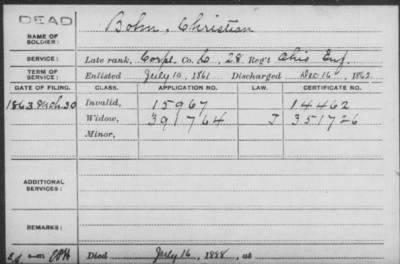 DEAD
NAME OF SOLDIER: Bohm, Christian
SERVICE: Late rank, Corpl. Co. L, 28 Reg't Ohio Inf.
TERM OF SERVICE: Enlisted July 10, 1861 Discharged Dec 16, 1862
DATE OF FILING. CLASS. APPLICATION NO. LAW. CERTIFICATE NO.
1863 Mch. 30 Invalid, 15967 14462
Widow, 391764 J 351726
Minor,
ADDITIONAL SERVICES:
REMARKS:
Died July 16, 1888, at